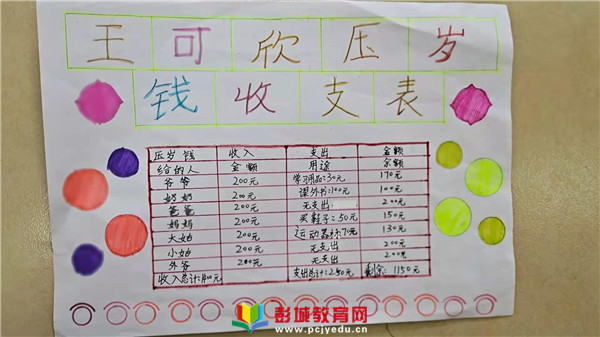 王可欣压岁
钱收支表
压岁钱 收入 支出 金额
给的人 金额 用途 余额
爷爷 200元 学习用品:30元 170元
奶奶 200元 课外书:100元 100元
爸爸 200元 无支出 200元
妈妈 200元 买鞋子:50元 150元
大姑 200元 运动器材:70元 130元
小姑 200元 无支出 200元
外爷 200元 无支出 200元
收入总计:1400元 支出总计:250元 剩余:1150元
彭城教育网
www.pcjyedu.cn